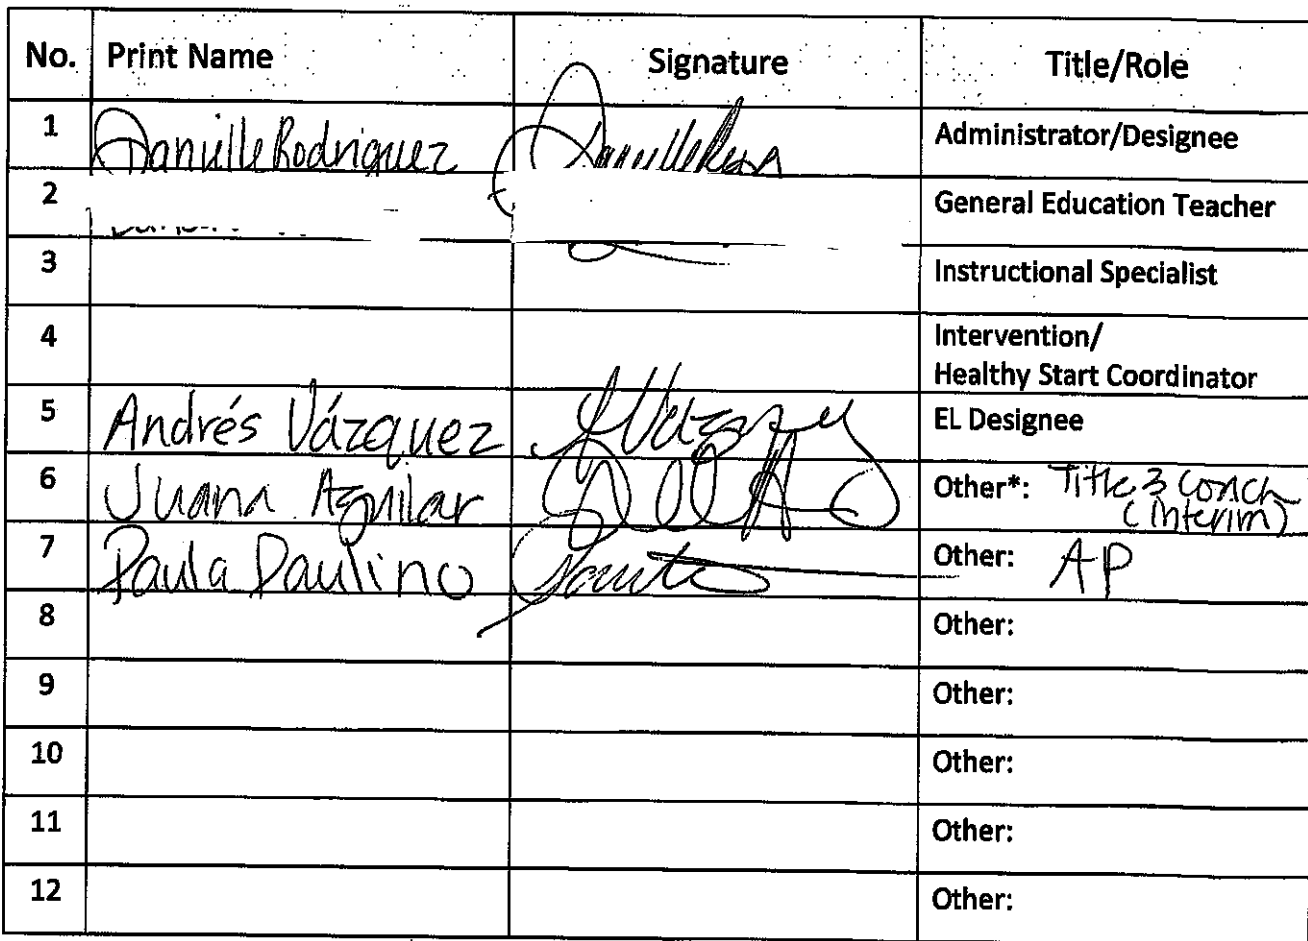 No. Print Name Signature Title/Role
1 Danielle Rodriguez Administrator/Designee
2 General Education Teacher
3 Instructional Specialist
4 Intervention/
Healthy Start Coordinator
5 Andrés Vázquez AVazquez EL Designee
6 Juana Aguilar Other*: Title 3 Coach
(Interim)
7 Paula Paulino Other: AP
8 Other:
9 Other:
10 Other:
11 Other:
12 Other: